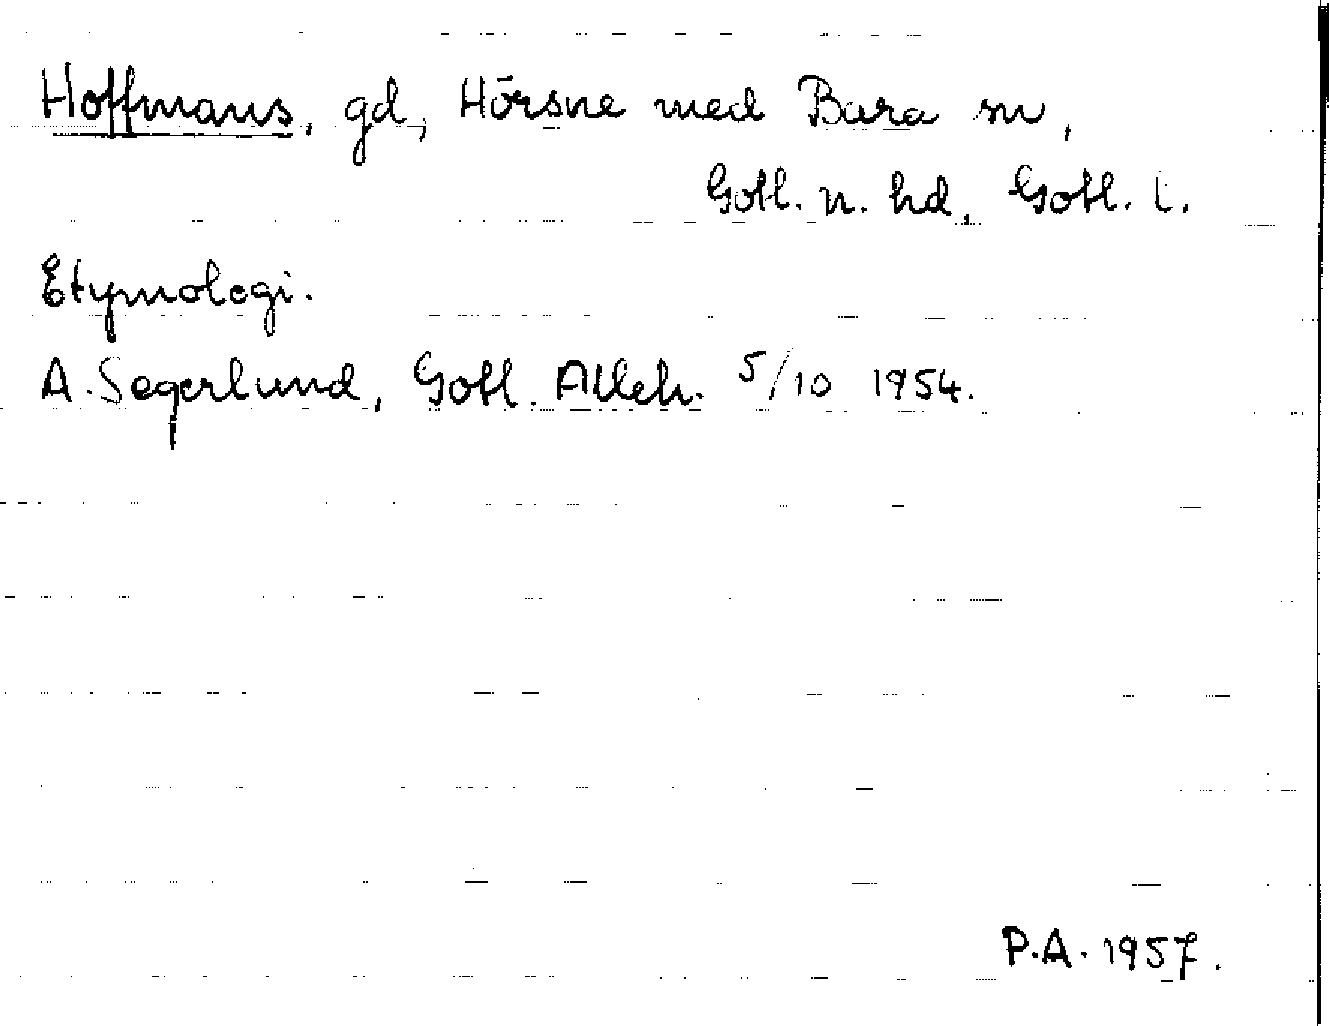 Hoffmans, gd, Hörsne med Bara sn,
Gotl. n. hd, Gotl. l.
Etymologi.
A. Segerlund, Gotl. Alleh. 5/10 1954.
P.A. 1957.